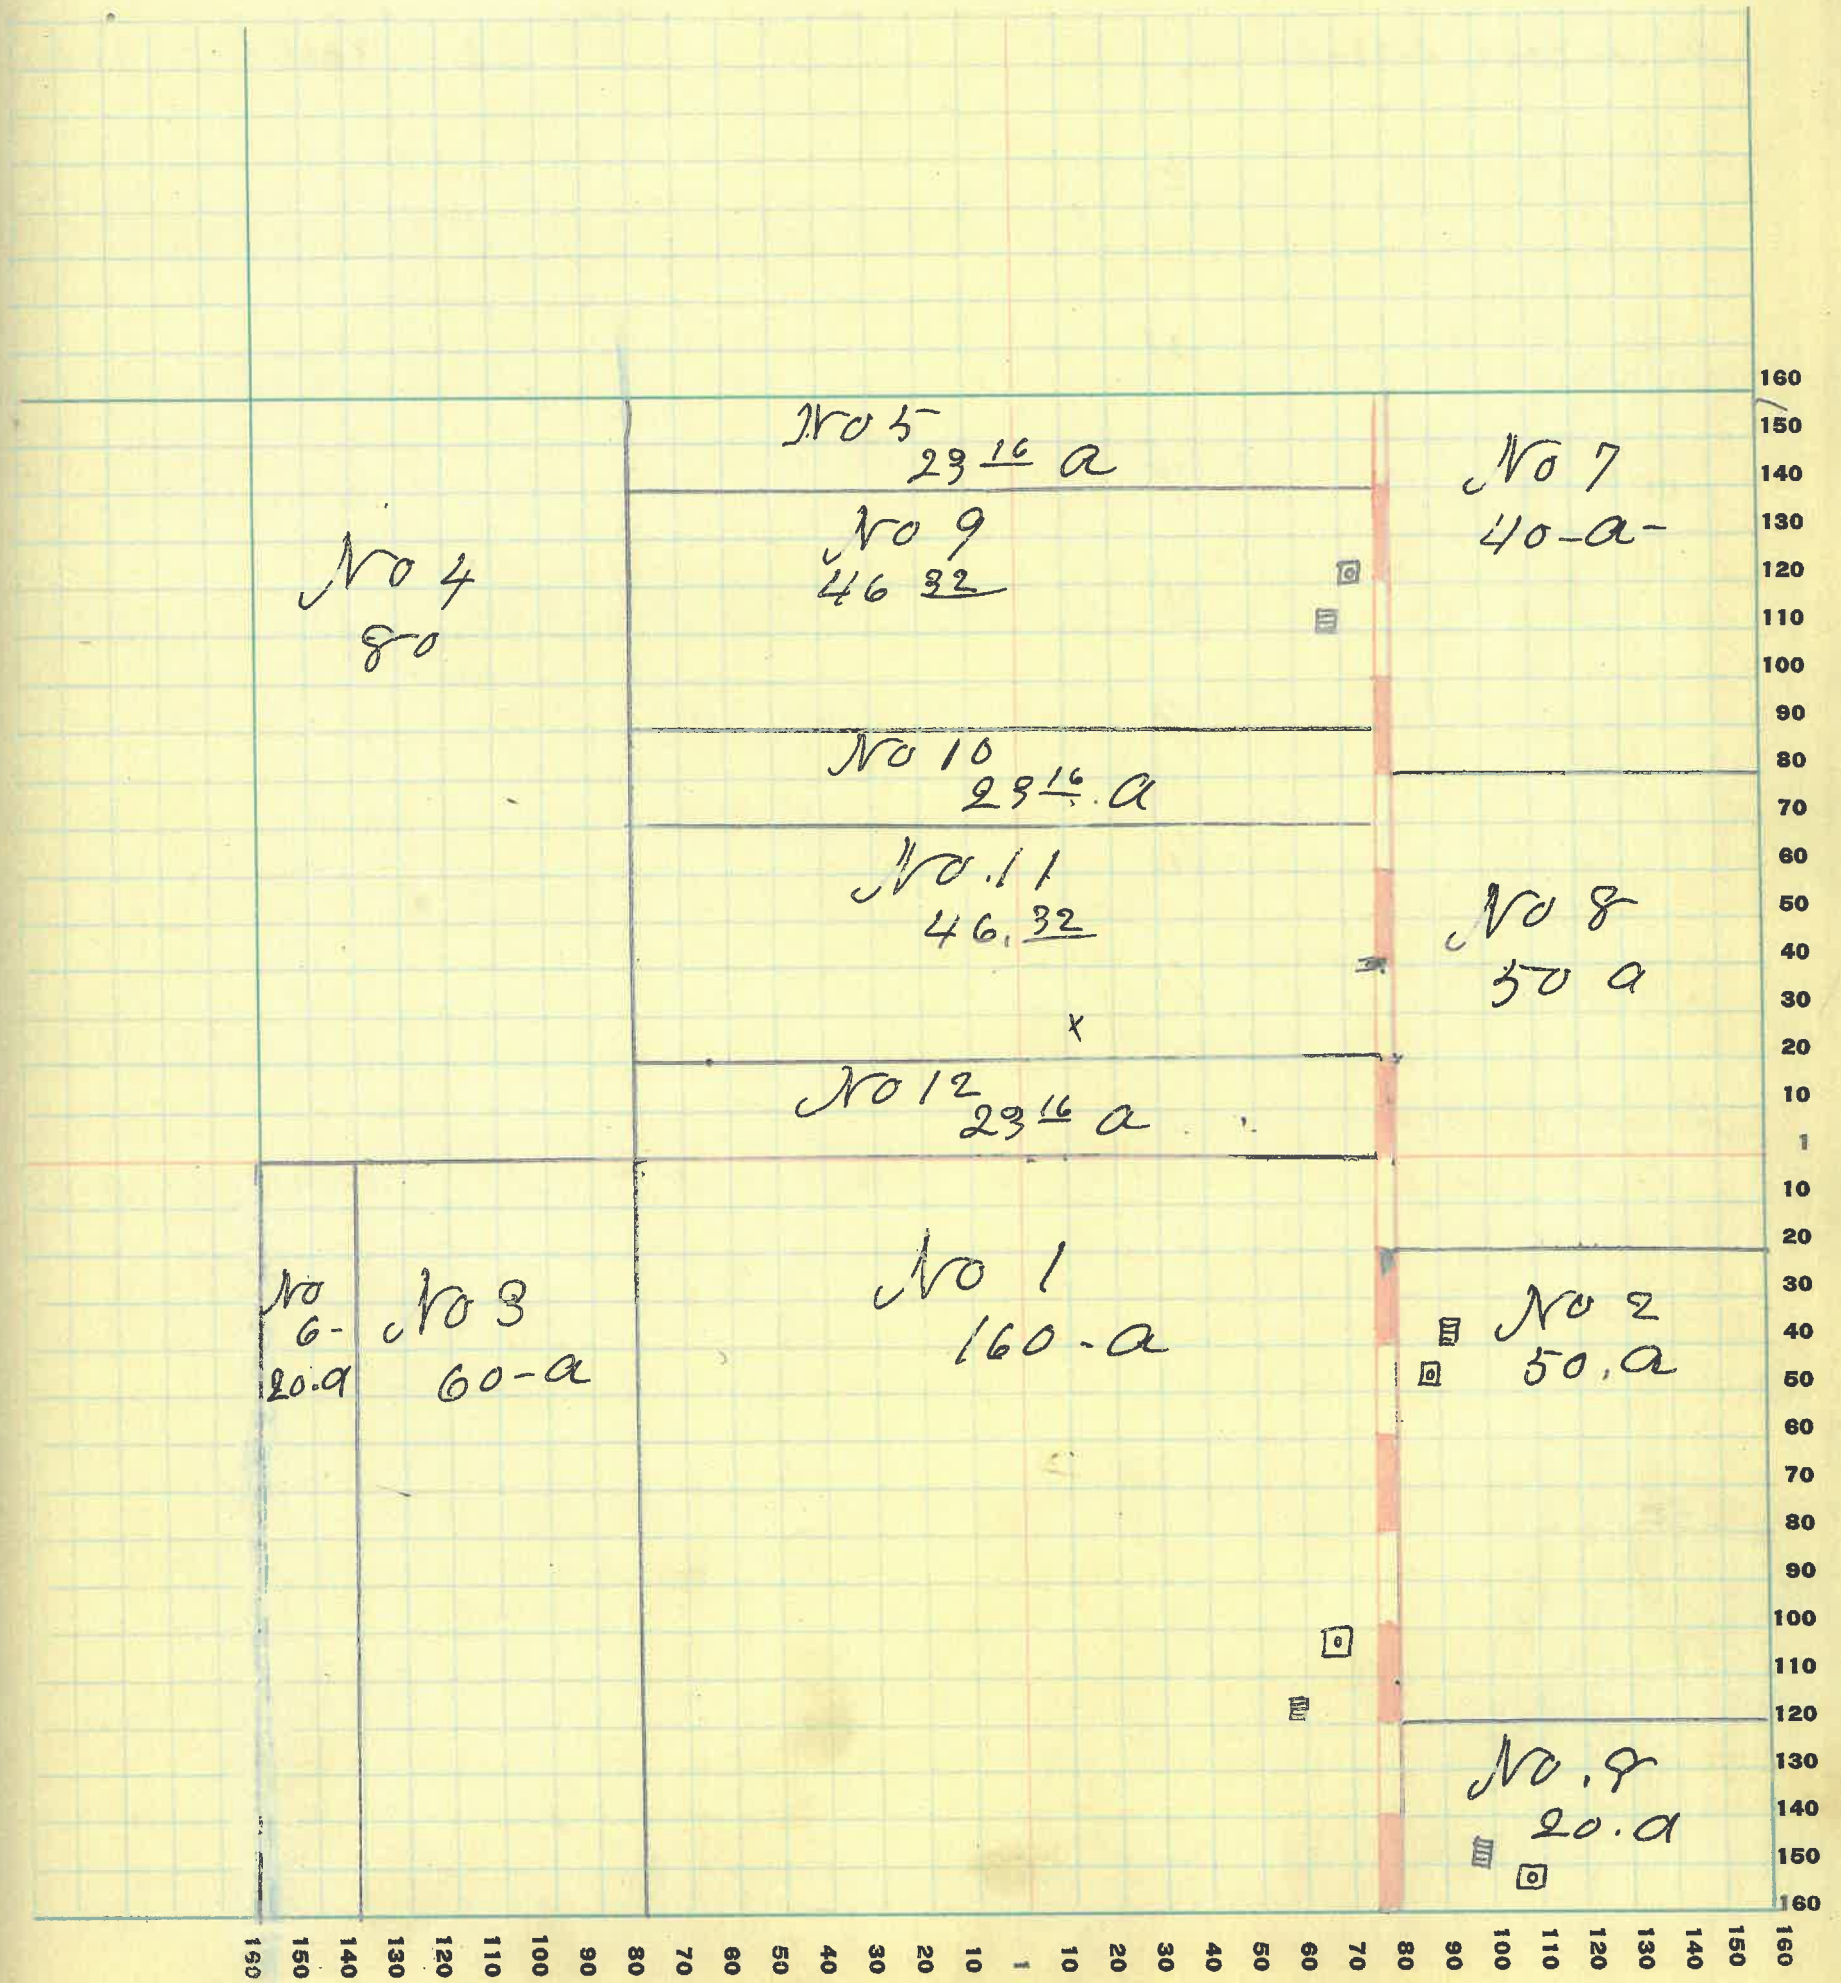 No 5
23 16 a
No 7
40-a-
No 9
46 32
No 4
80
No 10
23 16. a
No. 11
46. 32
No 8
50 a
x
No 12
23 16 a
No 1
160-a
No
6-
20.a
No 3
60-a
No 2
50.a
No.
20.a
160
150
140
130
120
110
100
90
80
70
60
50
40
30
20
10
1
10
20
30
40
50
60
70
80
90
100
110
120
130
140
150
160
160 150 140 130 120 110 100 90 80 70 60 50 40 30 20 10 1 10 20 30 40 50 60 70 80 90 100 110 120 130 140 150 160